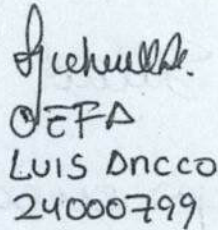 OEFA
LUIS Ancco
24000799